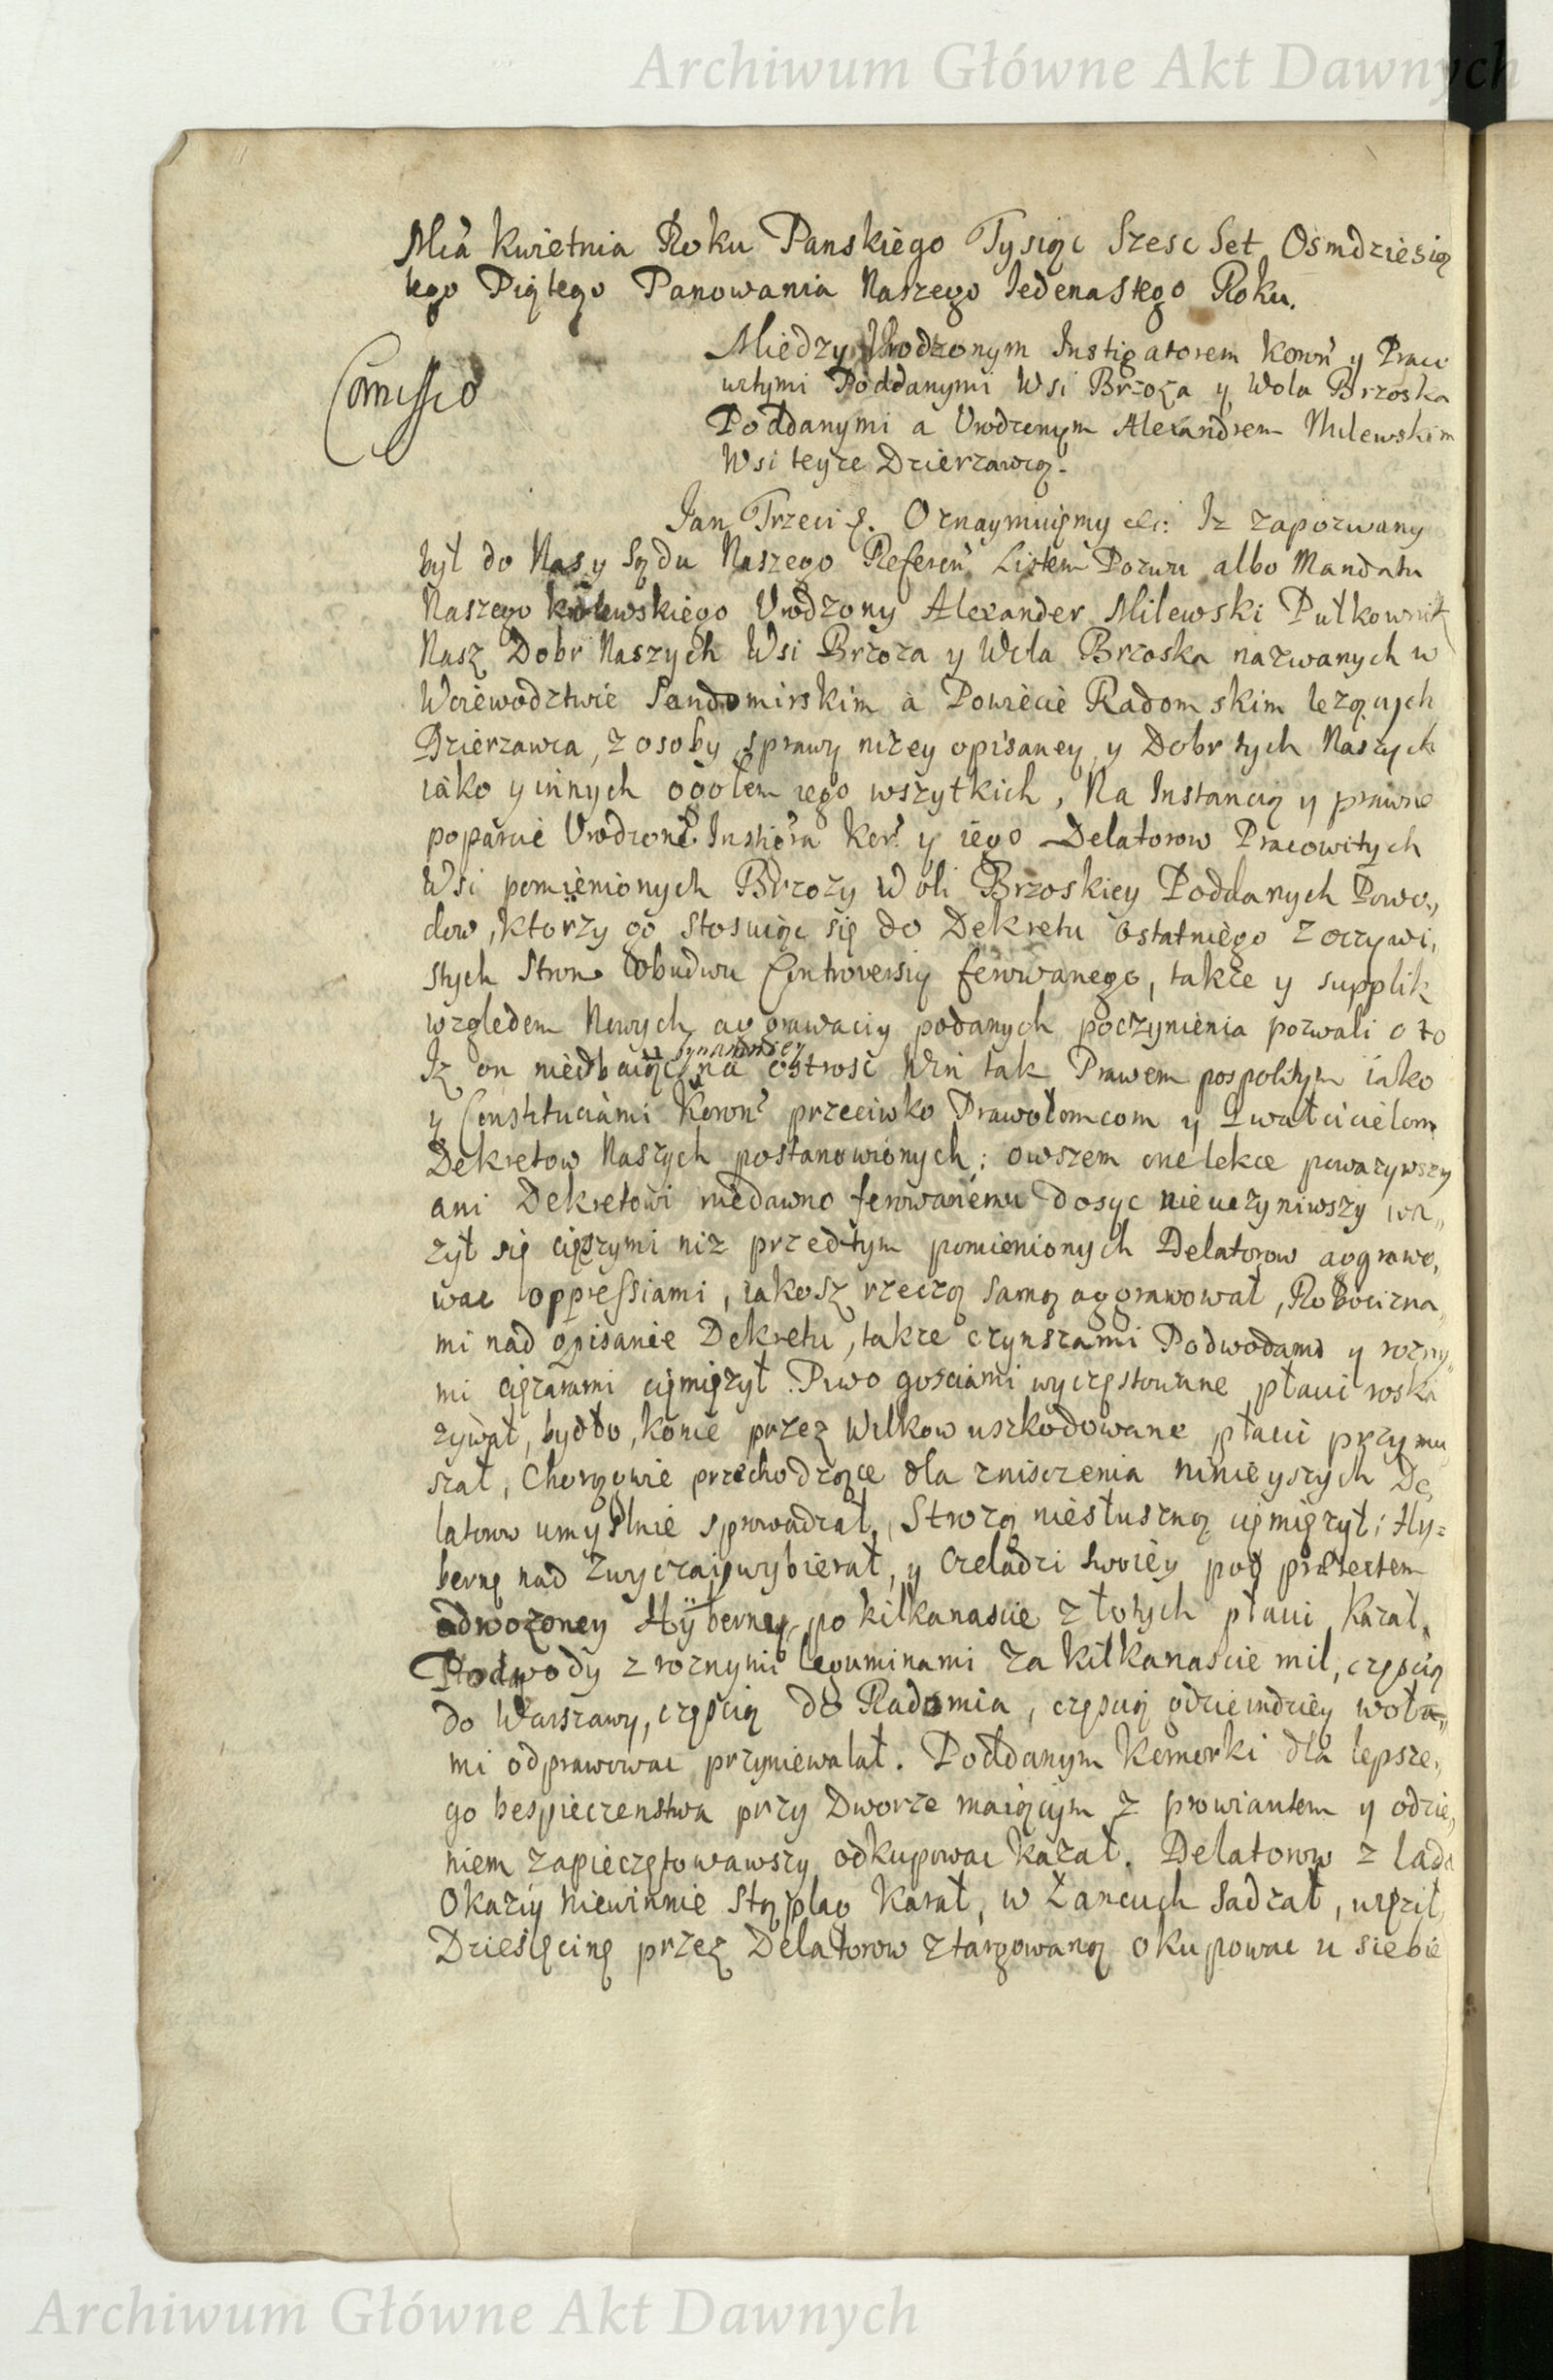 Archiwum Główne Akt Dawnych
Mca Kwietnia Roku Panskiego Tysiąc Szesc Set Osmdziesią
tego Piątego Panowania Naszego Iedenastego Roku.
Comissio
Miedzy Urodzonym Instigatorem Koron y Praco
witymi Poddanymi Wsi Brzoza y Wola Brzoska
Poddanymi a Urodzonym Alexandrem Milewskim
Wsi teyze Dzierzawcą.
Jan Trzeci &. Oznaymuięmy etc: Iz zapozwany
był do Nas y Sądu Naszego Referen Listem Pozwu albo Mandatu
Naszego Krolewskiego Urodzony Alexander Milewski Pułkownik
Nasz Dobr Naszych Wsi Brzoza y Wola Brzoska nazwanych w
Woiewodztwie Sandomirskim a Powiecie Radomskim lezących
Dzierzawca, z osoby sprawy nizey opisaney y Dobr tych Naszych
iako y innych ogołem iego wszytkich, Na Instancią y prawne
poparcie Urodzone Instigra Kor y iego Delatorow Pracowitych
Wsi pomienionych Brzozy Woli Brzoskiey Poddanych Powo,,
dow, ktorzy go stosuiąc się do Dekretu ostatniego z oczywi,
stych Stron obudwu Controversiy ferowanego, takze y supplik
względem Nowych aggrawaciy podanych poczynienia pozwali o to
Iz on niedbaiąc
bynamniey
na ostrosc Win tak Prawem pospolitym iako
y Constituciami Koron przeciwko Prawołomcom y Gwałcicielom
Dekretow Naszych postanowionych; owszem one lekce powazywszy
ani Dekretowi niedawno ferowanemu dosyc nieuczyniwszy wa,,
zył się cięszymi niz przedtym pomienionych Delatorow aggrawo,
wac oppressiami, iakosz rzeczą samą aggrawował, Robocizna,,
mi nad opisanie Dekretu, takze czynszami Podwodami y rozny,,
mi cięzarami ciemięzył. Piwo gosciami wyczęstowane płacic roska
zywał, bydło, konie przez Wilkow uszkodowane płacic przymu
szał, Chorągwie przechodzące dla zniszczenia ninieyszych De,
latorow umyslnie sprowadzał, Strozą niesłuszną ciemięzył; Hy=
bernę nad zwyczay wybierał, y Czeladzi swoiey pod praetextem
odwozoney Hyberny po kilkanascie złotych płacic kazał.
Podwody z roznymi leguminami za kilkanascie mil, częscią
do Warszawy, częscią do Radomia, częscią gdzieindziey woła,,
mi odprawowac przyniewalał. Poddanym Komorki dla lepsze,,
go bespieczenstwa przy Dworze maiącym z prowiantem y odzie,,
niem zapieczętowawszy odkupowac kazał. Delatorow z lada
Okaziy niewinnie Stą plag karał, w Łancuch sadzał, więził,
Dziesięcinę przez Delatorow ztargowaną okupowac u siebie
Archiwum Główne Akt Dawnych